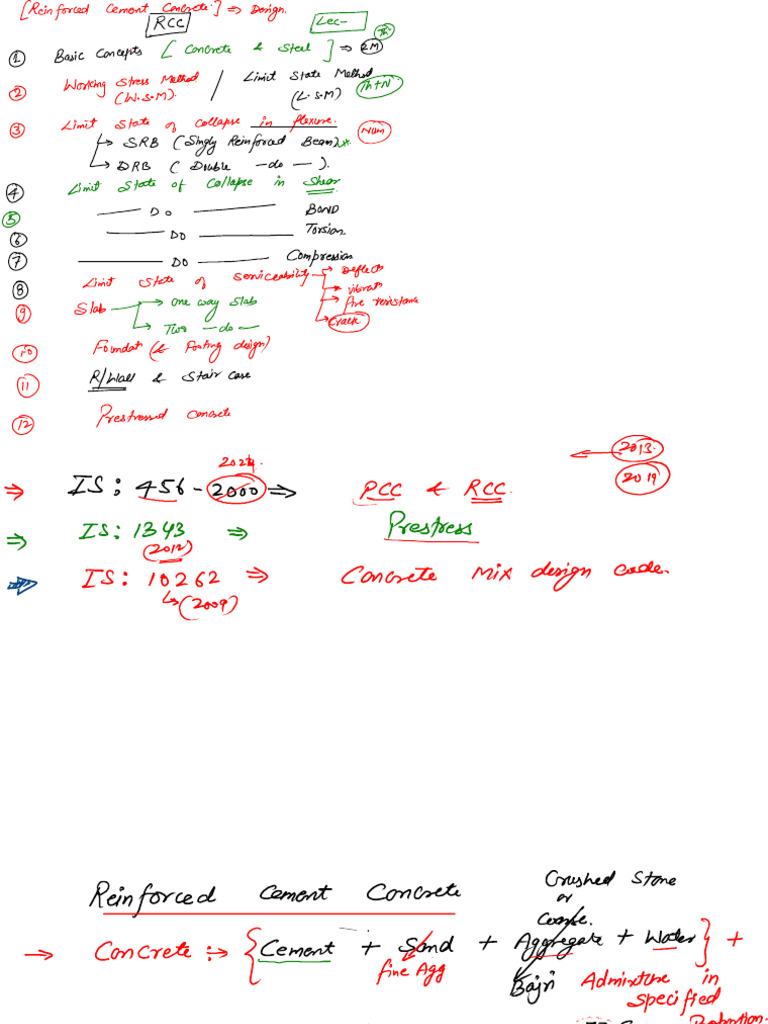 [Reinforced Cement Concrete.] ⇒ Design.
RCC
Lec-
① Basic Concepts [Concrete & Steel] ⇒ 2M Th
② Working Stress Method / Limit State Method Th+N
(W.S.M). (L.S.M)
③ Limit State of Collapse in flexure. Num
→ SRB (Singly Reinforced Beam)*
→ DRB (Double —do—).
④ Limit State of Collapse in Shear
⑤ —— Do —— Bond
⑥ —— Do —— Torsion
⑦ —— Do —— Compression
⑧ Limit State of Serviceability → Deflectn
→ vibratn
→ Fire resistance
→ Crack
⑨ Slab → One way Slab
→ Two —do—
⑩ Foundatn (& Footing design)
⑪ R/Wall & Stair case
⑫ Prestressed concrete
← 2013.
2019
2024.
⇒ IS: 456 - 2000 ⇒ PCC & RCC.
⇒ IS: 1343 ⇒ Prestress
(2012)
⇒ IS: 10262 ⇒ Concrete Mix design code.
↳(2009)
Reinforced Cement Concrete
Crushed Stone
or
Coarse.
→ Concrete :→ {Cement + Sand + Aggregate + Water} +
fine Agg
Bajri
Admixture in
specified